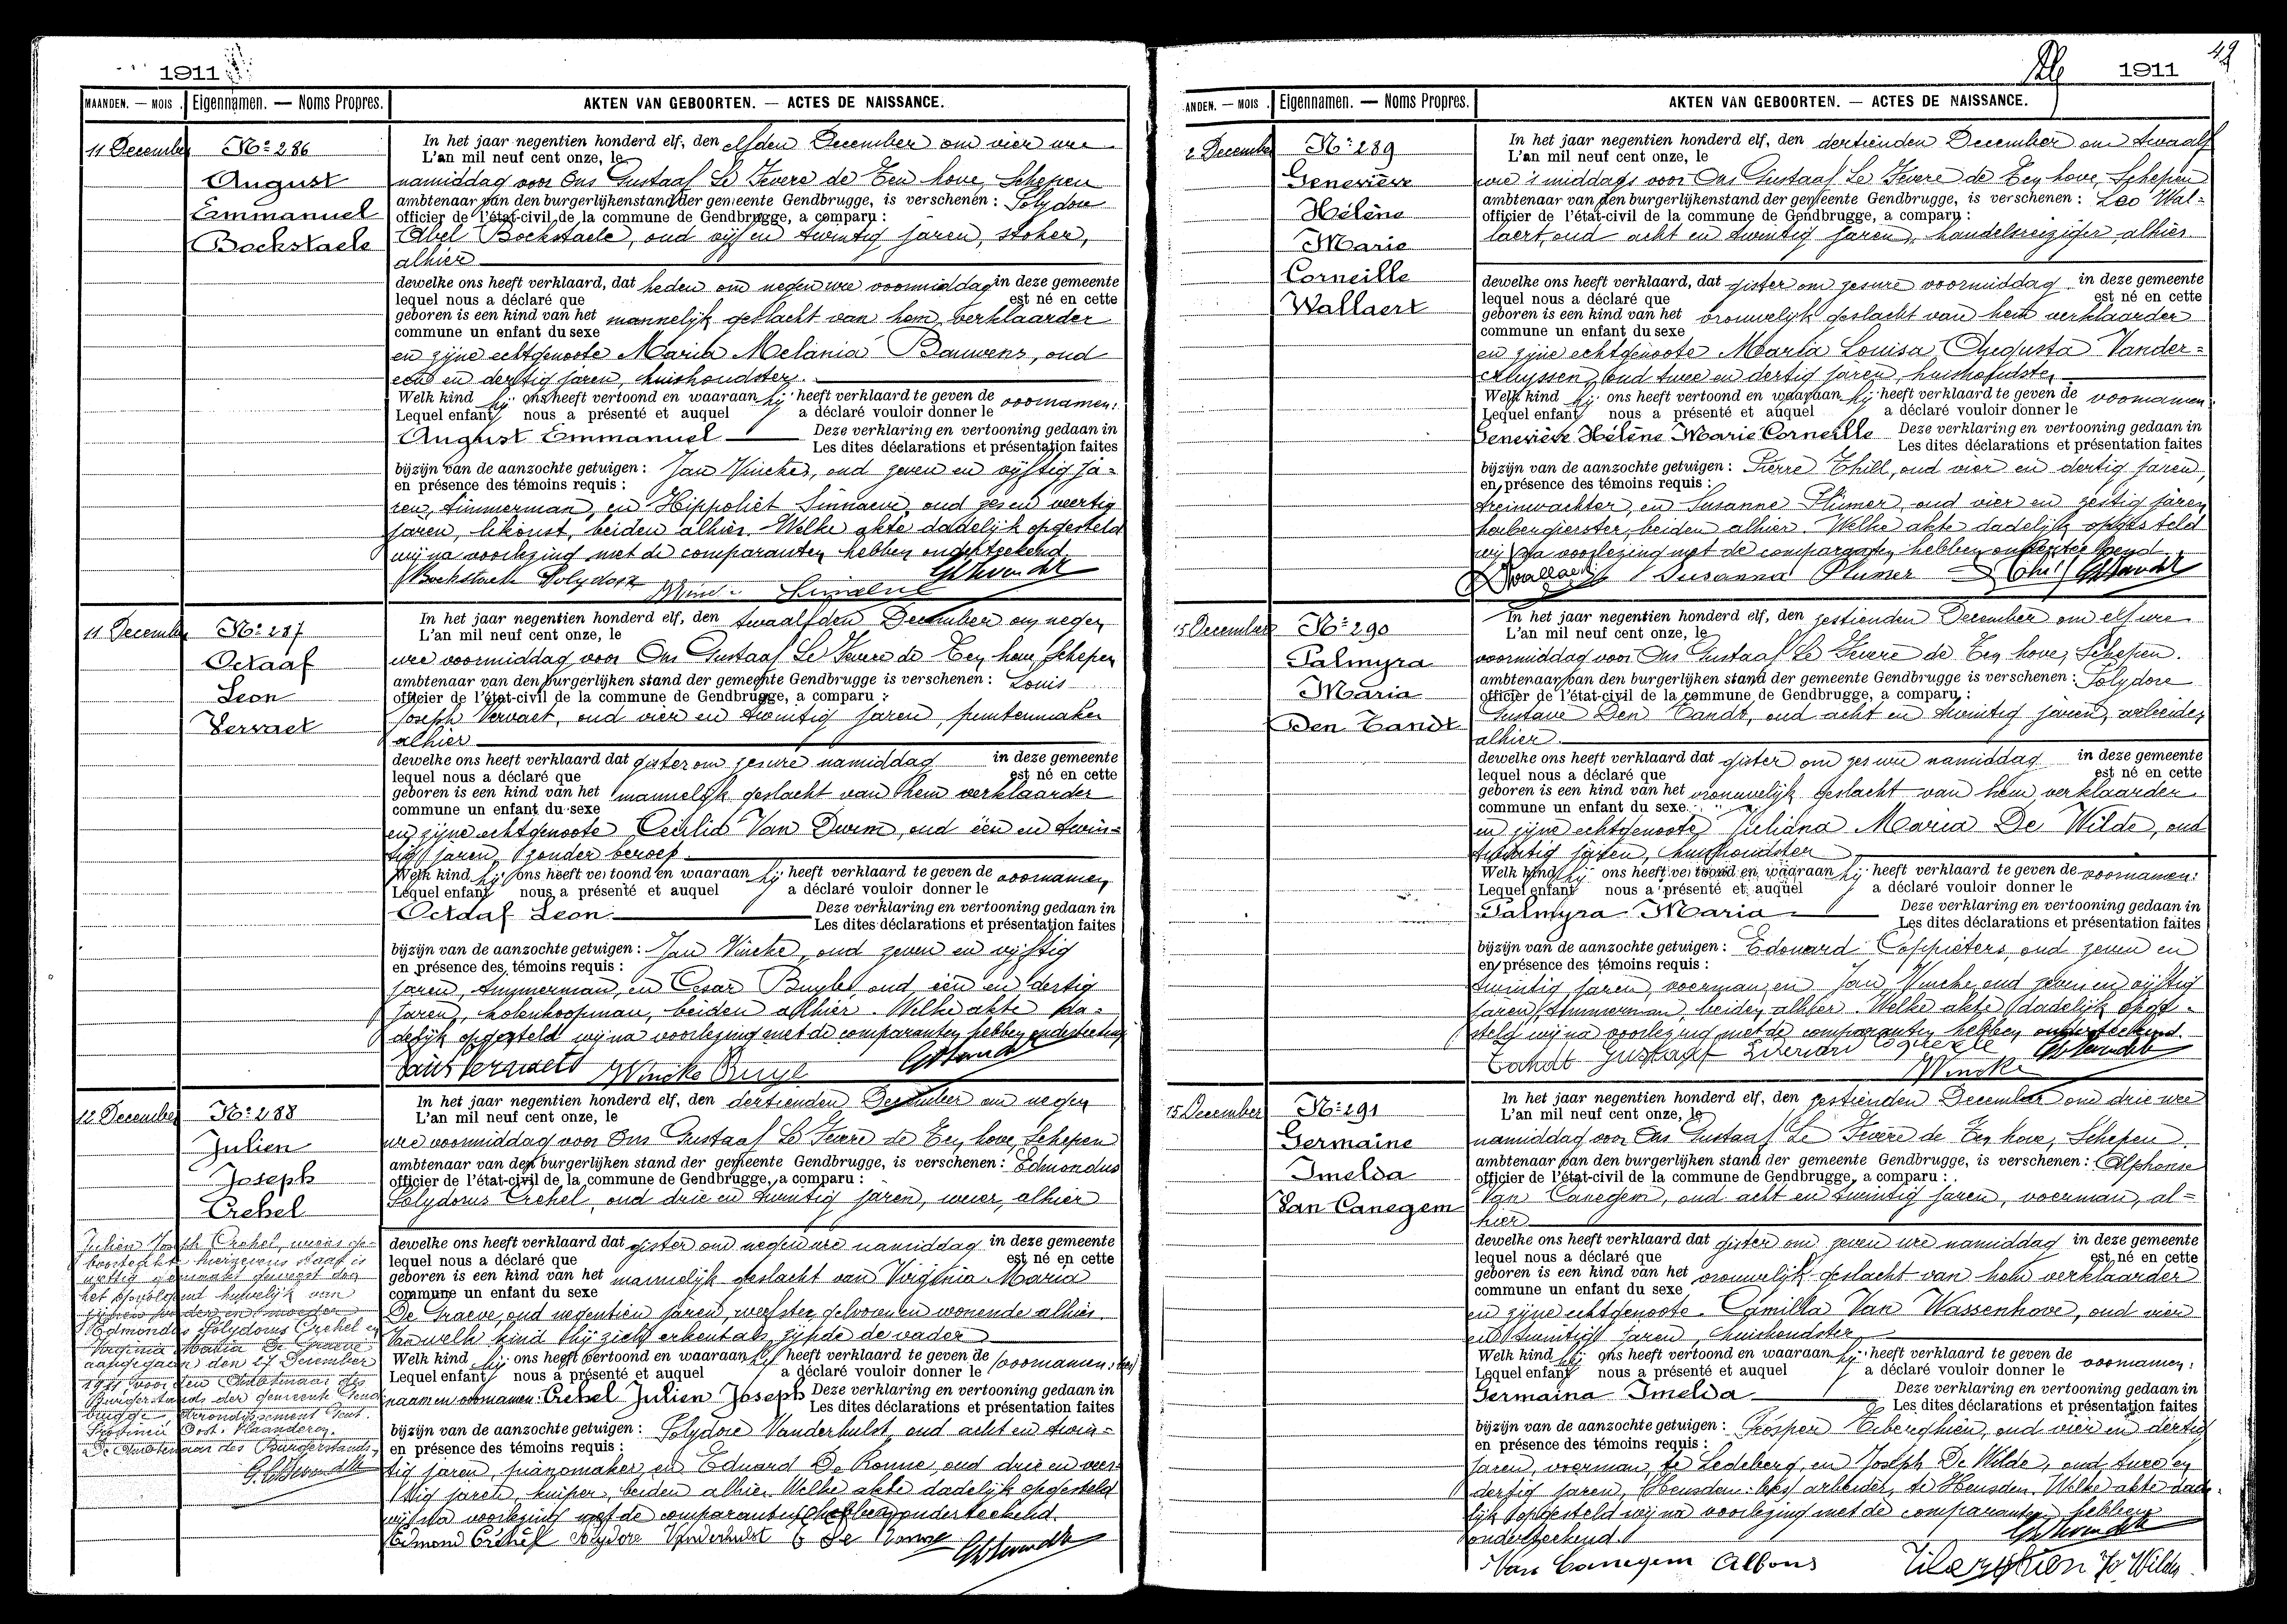 1911
MAANDEN. — MOIS. Eigennamen. — Noms Propres. AKTEN VAN GEBOORTEN. — ACTES DE NAISSANCE.
11 December
No 286
August
Emmanuel
Bockstaele
In het jaar negentien honderd elf, den elfden December om vier ure
L'an mil neuf cent onze, le
namiddag voor Ons Gustaaf Le Fevere de Ten hove, Schepen
ambtenaar van den burgerlijkenstand der gemeente Gendbrugge, is verschenen: Polydoor
officier de l'état-civil de la commune de Gendbrugge, a comparu :
Abel Bockstaele, oud vijf en twintig jaren, stoker,
alhier
dewelke ons heeft verklaard, dat heden om negen ure voormiddag in deze gemeente
lequel nous a déclaré que est né en cette
geboren is een kind van het mannelijk geslacht van hem verklaarder
commune un enfant du sexe
en zijne echtgenoote Maria Melania Bauwens, oud
een en dertig jaren, huishoudster.
Welk kind hij ons heeft vertoond en waaraan hij heeft verklaard te geven de voornamen:
Lequel enfant nous a présenté et auquel a déclaré vouloir donner le
August Emmanuel Deze verklaring en vertooning gedaan in
Les dites déclarations et présentation faites
bijzijn van de aanzochte getuigen: Jan Vincke, oud zeven en vijftig ja-
en présence des témoins requis :
ren, timmerman, en Hippoliet Sinnaeve, oud zes en veertig
jaren, beiden alhier. Welke akte dadelijk opgesteld
wij na voorlezing met de comparanten hebben onderteekend.
Bockstaele Polydoor
11 December
No 287
Octaaf
Leon
Vervaet
In het jaar negentien honderd elf, den twaalfden December om negen
L'an mil neuf cent onze, le
ure voormiddag voor Ons Gustaaf Le Fevere de Ten hove, Schepen
ambtenaar van den burgerlijken stand der gemeente Gendbrugge is verschenen: Louis
officier de l'état-civil de la commune de Gendbrugge, a comparu :
Joseph Vervaet, oud vier en twintig jaren,
alhier
dewelke ons heeft verklaard dat gister om zes ure namiddag in deze gemeente
lequel nous a déclaré que est né en cette
geboren is een kind van het mannelijk geslacht van hem verklaarder
commune un enfant du sexe
en zijne echtgenoote Cecilia Van Dwem, oud één en twin-
tig jaren, zonder beroep
Welk kind hij ons heeft vertoond en waaraan hij heeft verklaard te geven de voornamen
Lequel enfant nous a présenté et auquel a déclaré vouloir donner le
Octaaf Leon. Deze verklaring en vertooning gedaan in
Les dites déclarations et présentation faites
bijzijn van de aanzochte getuigen: Jan Vincke, oud zeven en vijftig
en présence des témoins requis :
jaren, timmerman, en Cesar Buyle oud één en dertig
jaren, kolenkoopman, beiden alhier. Welke akte da-
delijk opgesteld wij na voorlezing met de comparanten hebben onderteekend
Vincke Buyle
12 December
No 288
Julien
Joseph
Crehel
In het jaar negentien honderd elf, den dertienden December om negen
L'an mil neuf cent onze, le
ure voormiddag voor Ons Gustaaf Le Fevere de Ten hove, Schepen
ambtenaar van den burgerlijken stand der gemeente Gendbrugge, is verschenen: Edmondus
officier de l'état-civil de la commune de Gendbrugge, a comparu :
Polydorus Crehel, oud drie en twintig jaren, wever, alhier
dewelke ons heeft verklaard dat gister om negen ure namiddag in deze gemeente
lequel nous a déclaré que est né en cette
geboren is een kind van het mannelijk geslacht van Virginia Maria
commune un enfant du sexe
De Graeve, oud negentien jaren, weefster, geboren en wonende alhier.
Van welk kind hij zich erkent als zijnde de vader
Welk kind hij ons heeft vertoond en waaraan hij heeft verklaard te geven de
Lequel enfant nous a présenté et auquel a déclaré vouloir donner le
naam en voornamen: Crehel Julien Joseph Deze verklaring en vertooning gedaan in
Les dites déclarations et présentation faites
bijzijn van de aanzochte getuigen: Polydore Vanderhulst, oud acht en twin-
en présence des témoins requis :
tig jaren, pianomaker, en Eduard De Ronne, oud drie en veer-
tig jaren, kuiper, beiden alhier. Welke akte dadelijk opgesteld
wij na voorlezing met de comparanten hebben onderteekend.
Edmond Crehel Polydore Vanderhulst E De Ronne
Julien Joseph Crehel, wiens ge-
boorteakte hiernevens staat is
wettig gemaakt geweest door
het opvolgend huwelijk van
zijnen vader en moeder
Edmondus Polydorus Crehel en
Virginia Maria De Graeve
aangegaan den 27 December
1911 voor den Ambtenaar des
Burgerstands der gemeente Gend-
brugge, Arrondissement Gent.
Provincie Oost-Vlaanderen.
De Ambtenaar des Burgerstands,
49
1911
ANDEN. — MOIS. Eigennamen. — Noms Propres. AKTEN VAN GEBOORTEN. — ACTES DE NAISSANCE.
2 December
No 289
Geneviève
Hélène
Marie
Corneille
Wallaert
In het jaar negentien honderd elf, den dertienden December om twaalf
L'an mil neuf cent onze, le
ure 's middags voor Ons Gustaaf Le Fevere de Ten hove, Schepen
ambtenaar van den burgerlijkenstand der gemeente Gendbrugge, is verschenen: Leo Wal-
officier de l'état-civil de la commune de Gendbrugge, a comparu :
laert, oud acht en twintig jaren, handelsreiziger alhier
dewelke ons heeft verklaard, dat gister om zes ure voormiddag in deze gemeente
lequel nous a déclaré que est né en cette
geboren is een kind van het vrouwelijk geslacht van hem verklaarder
commune un enfant du sexe
en zijne echtgenoote Maria Louisa Augusta Vander-
cruyssen, oud twee en dertig jaren, huishoudster
Welk kind hij ons heeft vertoond en waaraan hij heeft verklaard te geven de voornamen:
Lequel enfant nous a présenté et auquel a déclaré vouloir donner le
Geneviève Hélène Marie Corneille Deze verklaring en vertooning gedaan in
Les dites déclarations et présentation faites
bijzijn van de aanzochte getuigen: Pierre Thill, oud vier en dertig jaren,
en présence des témoins requis :
treinwachter, en Susanne Plumer, oud vier en zestig jaren,
herbergierster, beiden alhier. Welke akte dadelijk opgesteld
wij na voorlezing met de comparanten hebben onderteekend.
Wallaert Susanna Plumer Thill
15 December
No 290
Palmyra
Maria
Den Tandt
In het jaar negentien honderd elf, den zestienden December om elf ure
L'an mil neuf cent onze, le
voormiddag voor Ons Gustaaf Le Fevere de Ten hove, Schepen.
ambtenaar van den burgerlijken stand der gemeente Gendbrugge is verschenen: Polydore
officier de l'état-civil de la commune de Gendbrugge, a comparu :
Gustave Den Tandt, oud acht en twintig jaren, arbeider
alhier.
dewelke ons heeft verklaard dat gister om zes ure namiddag in deze gemeente
lequel nous a déclaré que est né en cette
geboren is een kind van het vrouwelijk geslacht van hem verklaarder
commune un enfant du sexe
en zijne echtgenoote Juliana Maria De Wilde, oud
twintig jaren, huishoudster
Welk kind hij ons heeft vertoond en waaraan hij heeft verklaard te geven de voornamen:
Lequel enfant nous a présenté et auquel a déclaré vouloir donner le
Palmyra Maria Deze verklaring en vertooning gedaan in
Les dites déclarations et présentation faites
bijzijn van de aanzochte getuigen: Edouard Coppieters, oud zeven en
en présence des témoins requis :
twintig jaren, voerman, en Jan Vincke oud zeven en vijftig
jaren, timmerman, beiden alhier. Welke akte dadelijk opge-
steld wij na voorlezing met de comparanten hebben onderteekend.
Tandt Gustaaf
Vincke
15 December
No 291
Germaine
Imelda
Van Canegem
In het jaar negentien honderd elf, den zestienden December om drie ure
L'an mil neuf cent onze, le
namiddag voor Ons Gustaaf Le Fevere de Ten hove, Schepen
ambtenaar van den burgerlijken stand der gemeente Gendbrugge, is verschenen: Alphonse
officier de l'état-civil de la commune de Gendbrugge, a comparu :
Van Canegem, oud acht en twintig jaren, voerman, al-
hier
dewelke ons heeft verklaard dat gister om zeven ure namiddag in deze gemeente
lequel nous a déclaré que est né en cette
geboren is een kind van het vrouwelijk geslacht van hem verklaarder
commune un enfant du sexe
en zijne echtgenoote Camilla Van Wassenhove, oud vier
en twintig jaren, huishoudster
Welk kind hij ons heeft vertoond en waaraan hij heeft verklaard te geven de voornamen:
Lequel enfant nous a présenté et auquel a déclaré vouloir donner le
Germaina Imelda Deze verklaring en vertooning gedaan in
Les dites déclarations et présentation faites
bijzijn van de aanzochte getuigen: Prosper Tiberghien, oud vier en dertig
en présence des témoins requis :
jaren, voerman, te Ledeberg, en Joseph De Wilde, oud twee en
dertig jaren, arbeider, te Heusden. Welke akte dade-
lijk opgesteld wij na voorlezing met de comparanten hebben
onderteekend.
Van Canegem Alfons Jo. Wilde